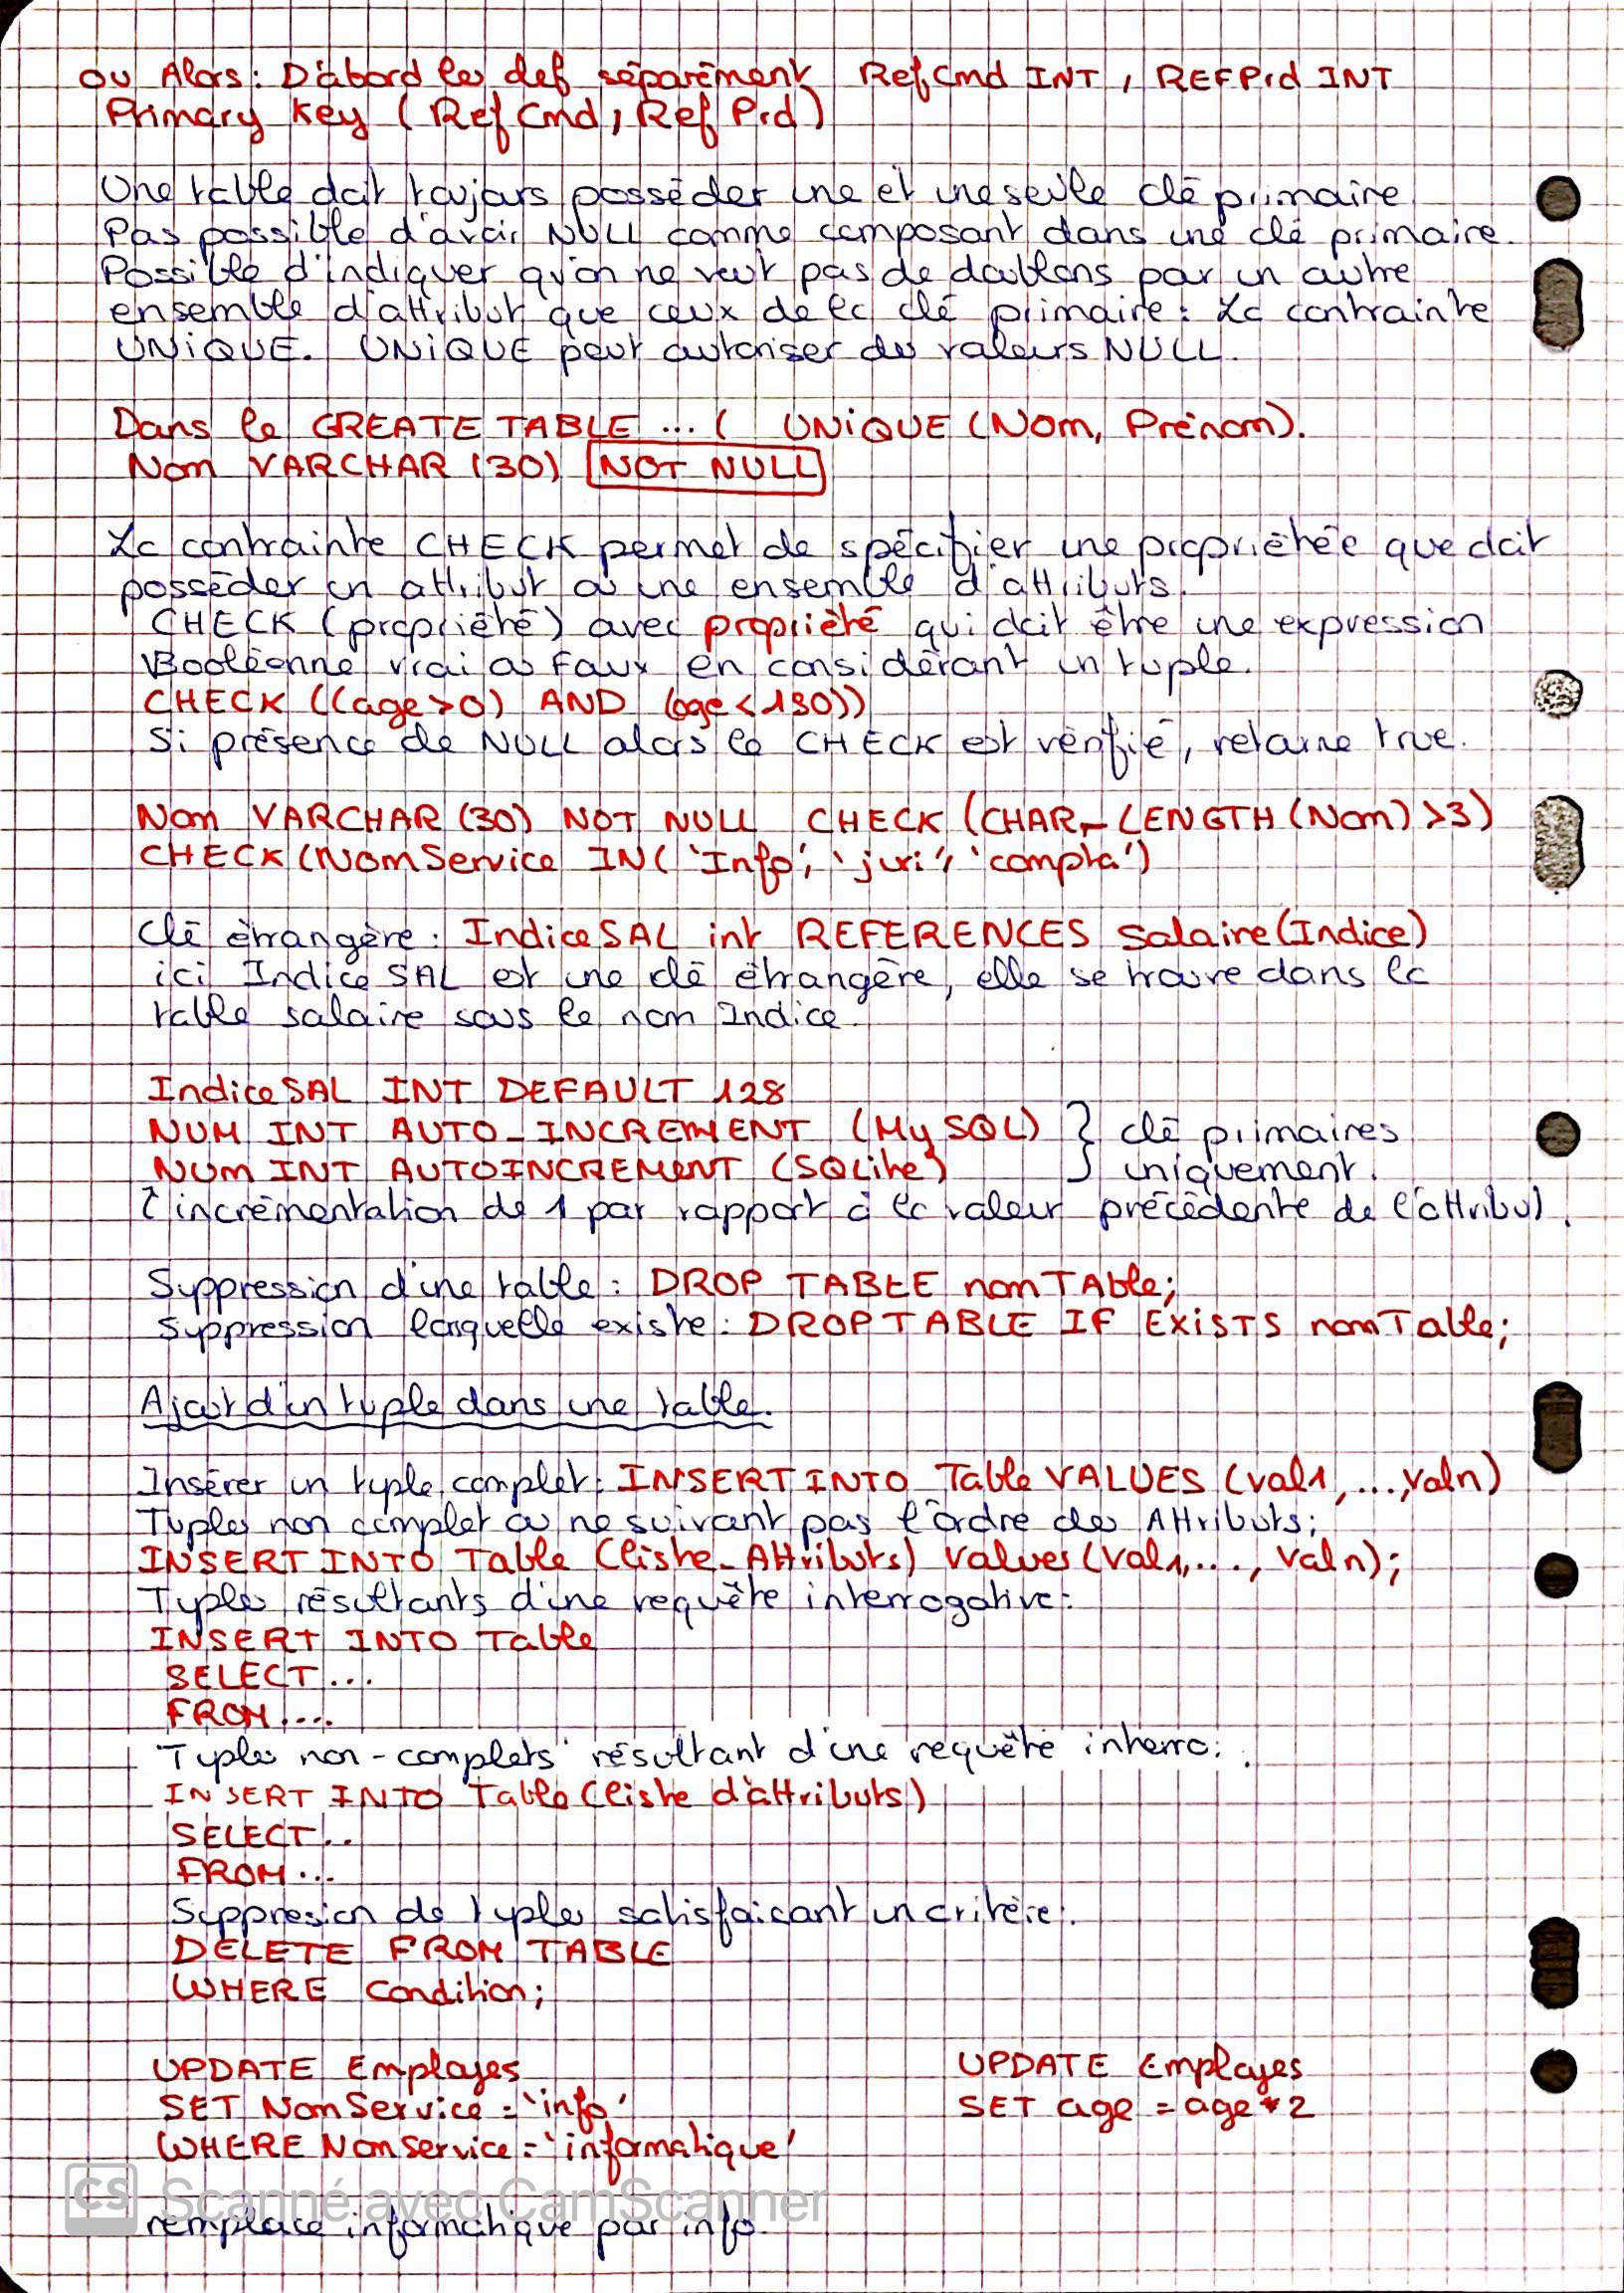 ou Alors: D'abord les def séparément RefCmd INT, REFPrd INT
Primary Key (RefCmd, RefPrd)
Une table doit toujours posséder une et une seule clé primaire
Pas possible d'avoir NULL comme composant dans une clé primaire.
Possible d'indiquer qu'on ne veut pas de doublons par un autre
ensemble d'attribut que ceux de la clé primaire: La contrainte
UNIQUE. UNIQUE peut autoriser des valeurs NULL.
Dans le CREATE TABLE ... ( UNIQUE (Nom, Prénom).
Nom VARCHAR (30) NOT NULL
La contrainte CHECK permet de spécifier une propriétée que doit
posséder un attribut ou une ensemble d'attributs.
CHECK (propriété) avec propriété qui doit être une expression
Booléenne vrai ou Faux en considérant un tuple.
CHECK ((age>0) AND (age<130))
Si présence de NULL alors le CHECK est vérifié, retourne true.
Nom VARCHAR (30) NOT NULL CHECK (CHAR_LENGTH (Nom) >3)
CHECK (NomService IN( 'Info', 'juri', 'compta')
Clé étrangère: IndiceSAL int REFERENCES Salaire(Indice)
ici IndiceSAL est une clé étrangère, elle se trouve dans la
table salaire sous le nom Indice.
IndiceSAL INT DEFAULT 128
NUM INT AUTO_INCREMENT (MySQL) } clé primaires
NUM INT AUTOINCREMENT (SQLite) } uniquement.
incrémentation de 1 par rapport à la valeur précédente de l'attribut.
Suppression d'une table: DROP TABLE nomTAble;
Suppression lorsquelle existe: DROP TABLE IF EXISTS nomTable;
Ajout d'un tuple dans une table.
Insérer un tuple complet: INSERT INTO Table VALUES (val1, ..., valn)
Tuples non complet ou ne suivant pas l'ordre des Attributs:
INSERT INTO Table (liste_Attributs) Values (val1, ..., valn);
Tuples résultants d'une requête interrogative:
INSERT INTO Table
SELECT ...
FROM ....
Tuples non-complets résultant d'une requête interro:
INSERT INTO Table (liste d'attributs)
SELECT ..
FROM ...
Suppresion de tuples satisfaicant un critère:
DELETE FROM TABLE
WHERE Condition;
UPDATE Employes
SET NomService = 'info'
WHERE Nomservice = 'informatique'
UPDATE Employes
SET age = age * 2
CS Scanné avec CamScanner
remplace informatique par info.